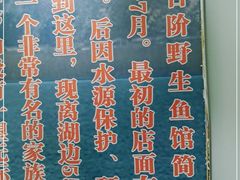 阶野生鱼馆简
7月。最初的店面
。后因水源保护、
到这里，现离湖边5
一个非常有名的家族